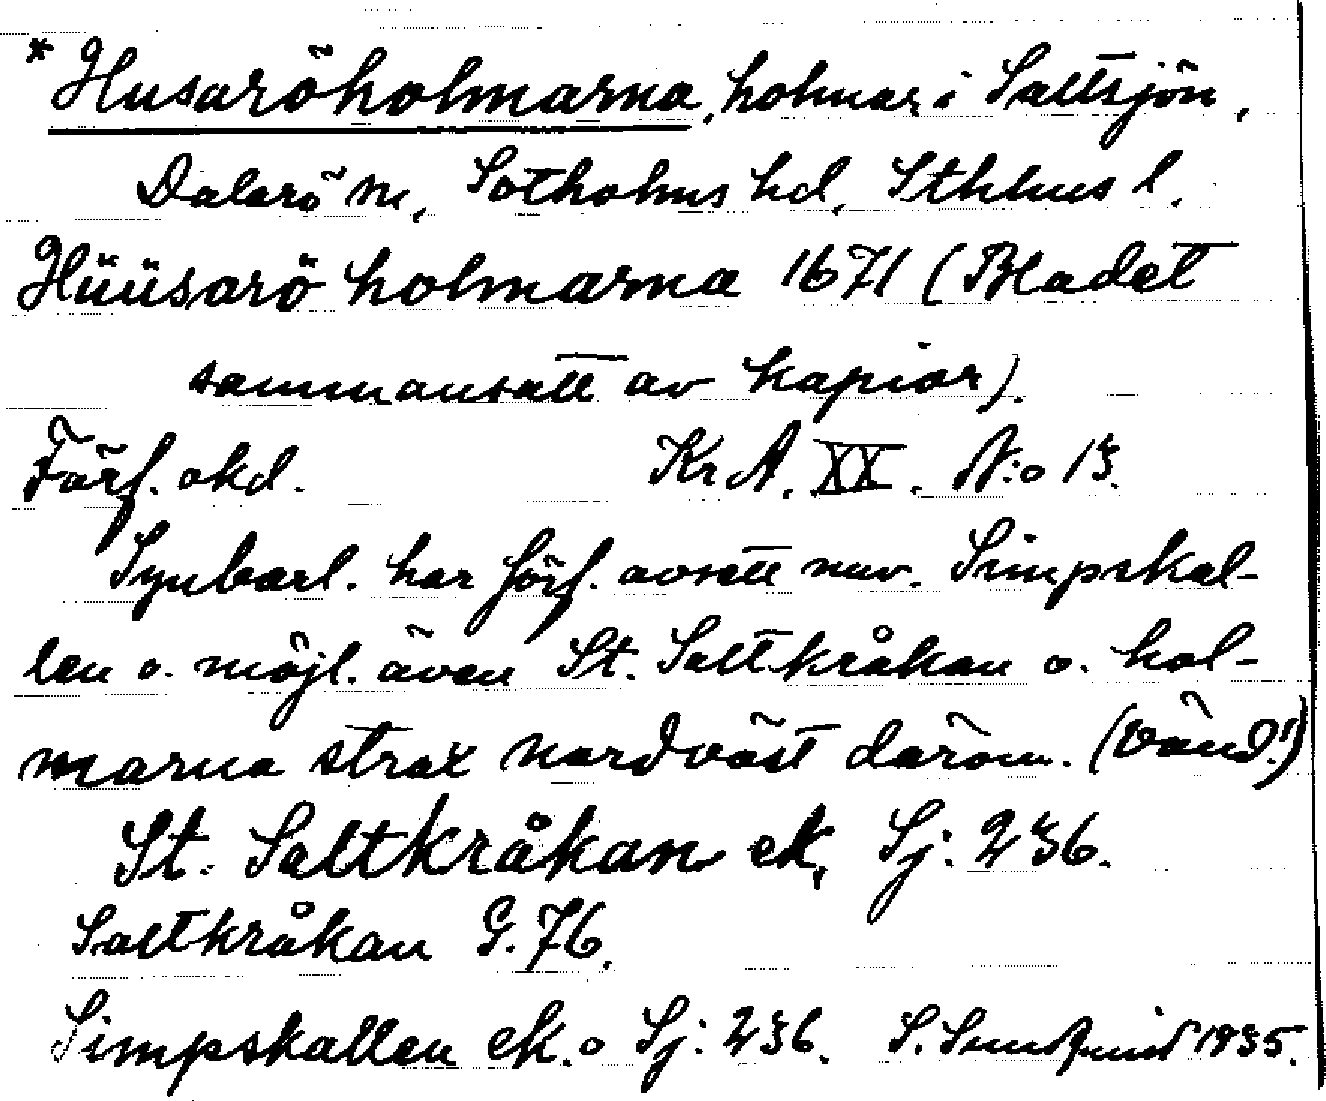 * Husaröholmarna, holmar i Saltsjön,
Dalarö sn, Sotholms hd, Sthlms l.
Hüüsarö holmarna 1671 (Bladet
sammansatt av kopior).
Förf. okd. Kr A. XX. N:o 13.
Synbarl. har förf. avsett nuv. Simpskal-
len o. möjl. även St. Saltkråkan o. hol-
marna strax nordväst därom. (Vänd!)
St. Saltkråkan ek, Sj: 236.
Saltkråkan G. 76.
Simpskallen ek. o Sj: 236. S. Sundquist 1935.